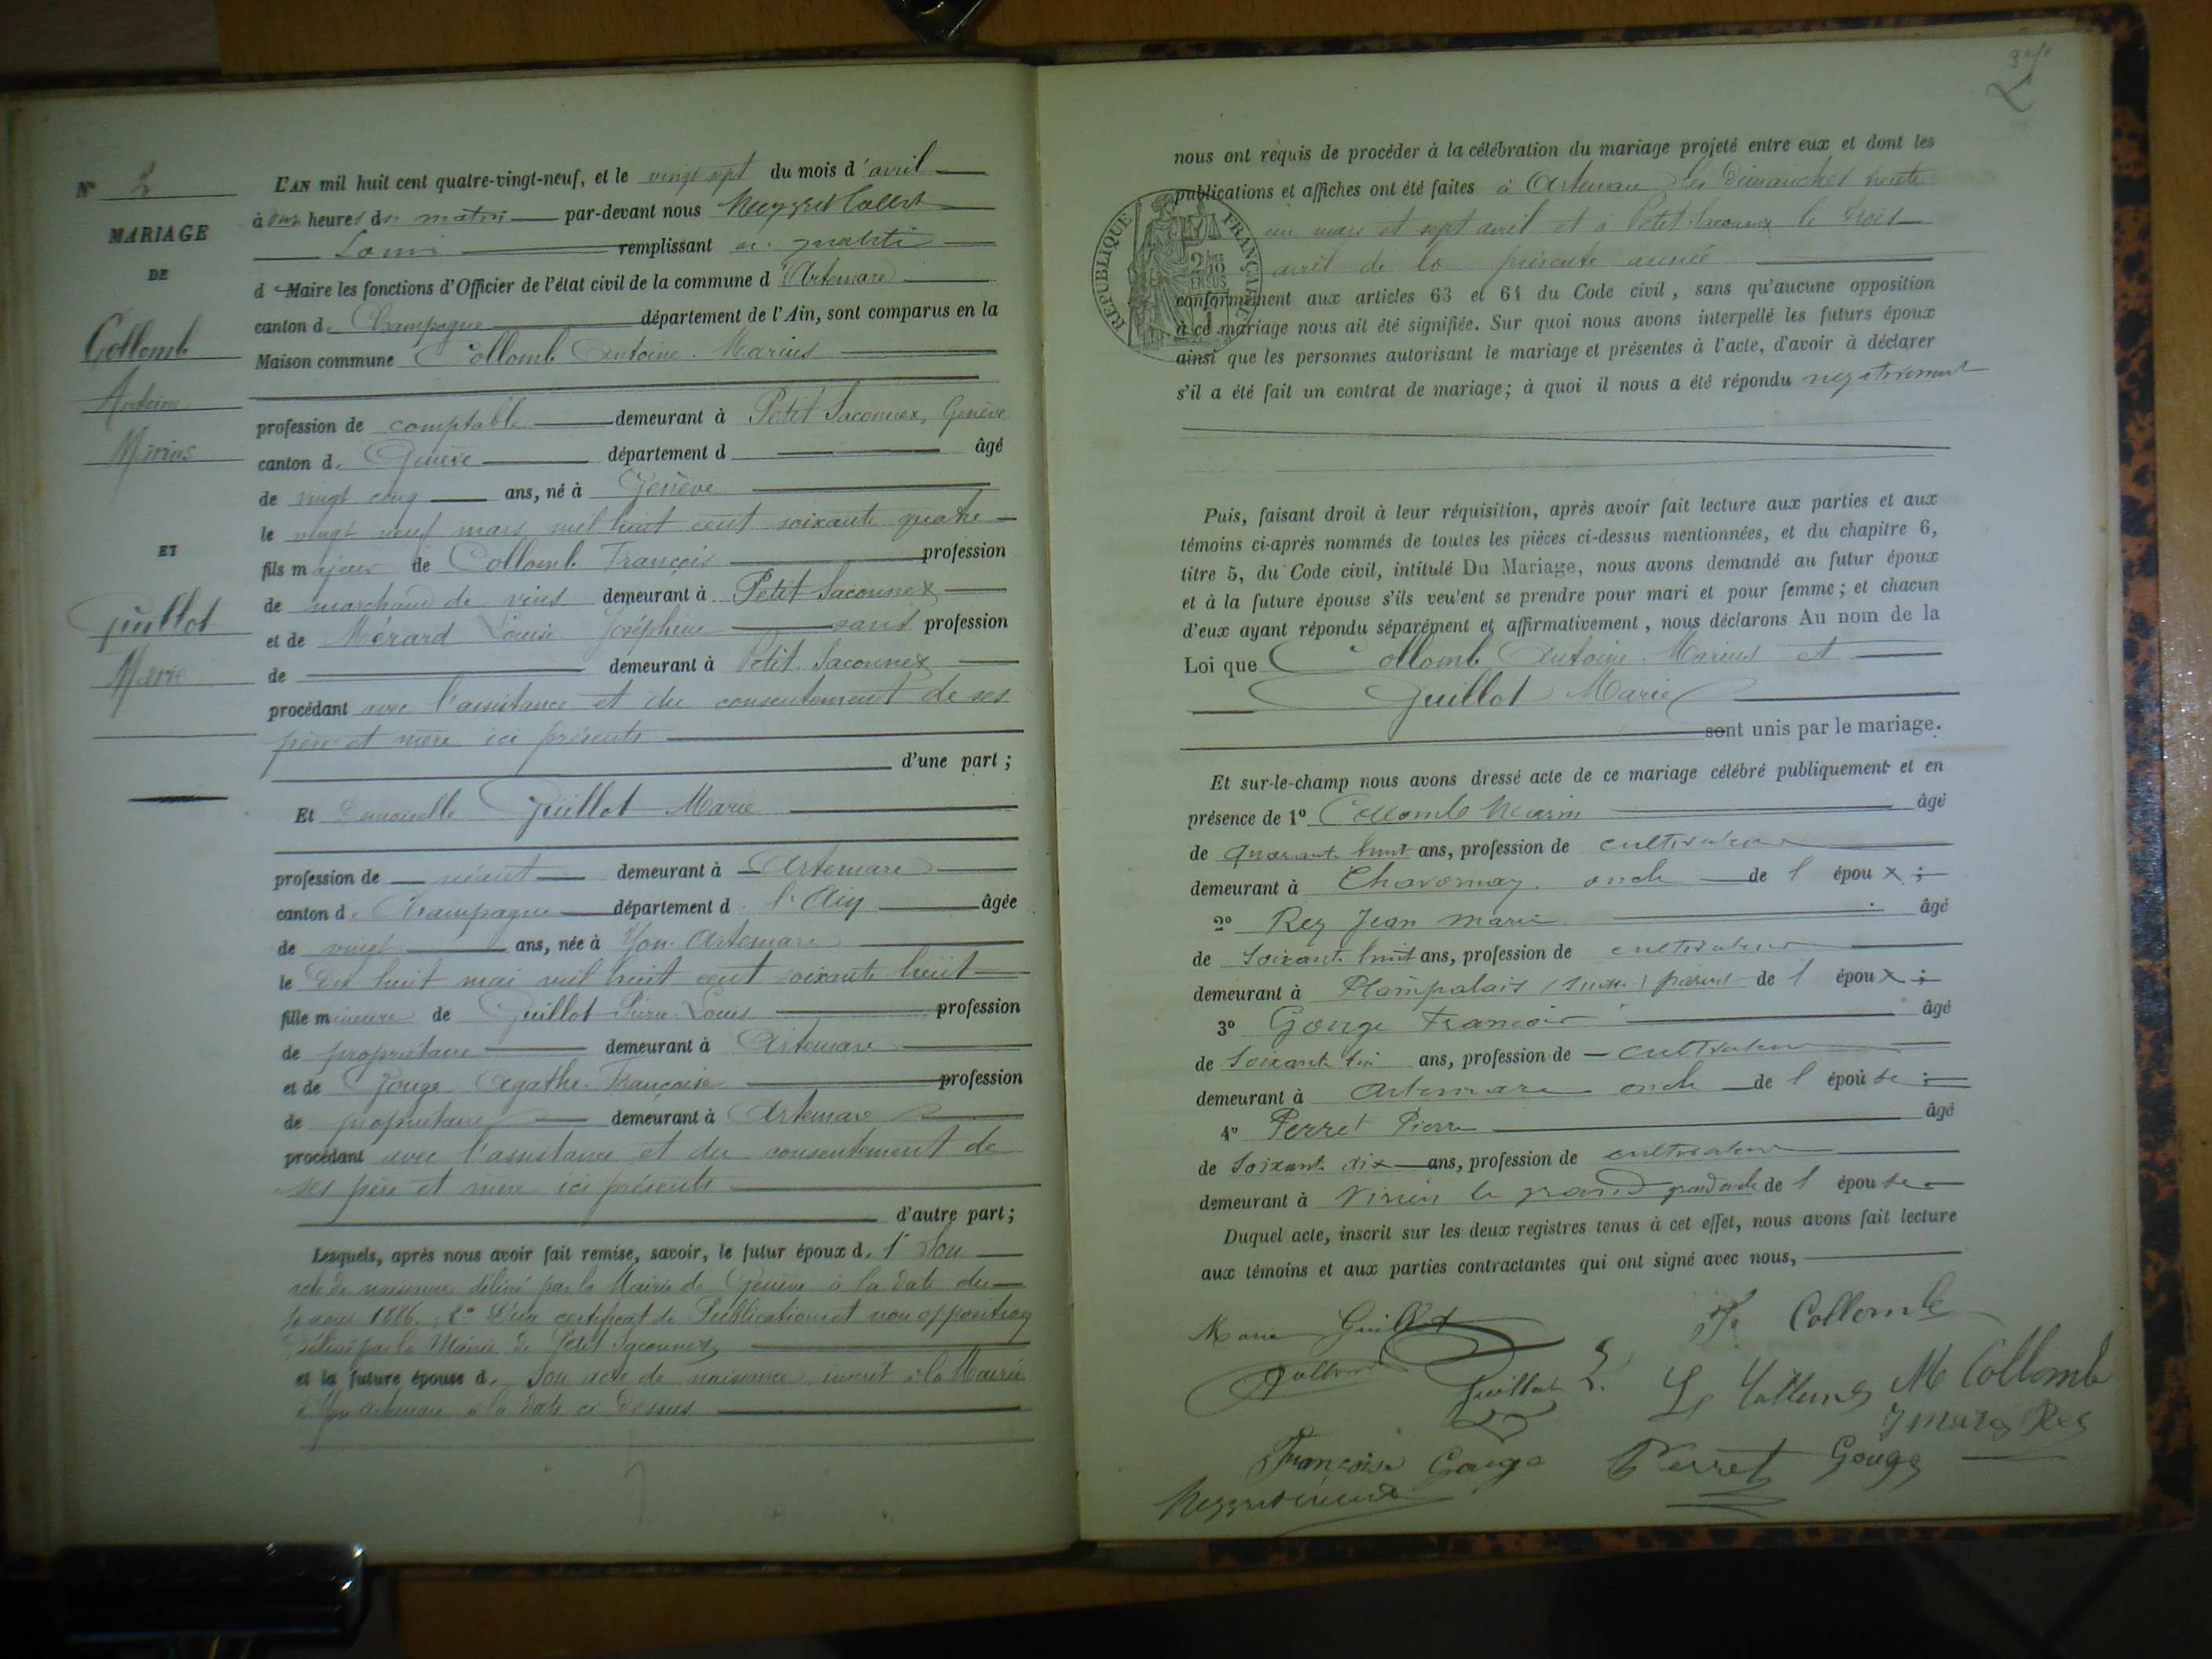 N° 2
MARIAGE
DE
Collomb
Antoine
Marius
ET
Guillot
Marie
L'AN mil huit cent quatre-vingt-neuf, et le vingt sept du mois d'avril
à onze heures du matin par-devant nous
Louis remplissant en qualité
de Maire les fonctions d'Officier de l'état civil de la commune d'Artemare
canton de Champagne département de l'Ain, sont comparus en la
Maison commune Collomb Antoine Marius
profession de comptable demeurant à Petit Saconnex, Genève
canton de Genève département d âgé
de vingt cinq ans, né à Genève
le vingt neuf mars mil huit cent soixante quatre
fils majeur de Collomb François profession
de marchand de vins demeurant à Petit Saconnex
et de Mérard Louise Joséphine sans profession
de demeurant à Petit Saconnex
procédant avec l'assistance et du consentement de ses
père et mère ici présents
d'une part ;
Et Demoiselle Guillot Marie
profession de néant demeurant à Artemare
canton de Champagne département de l'Ain âgée
de vingt ans, née à Yon Artemare
le dix huit mai mil huit cent soixante huit
fille mineure de Guillot Pierre Louis profession
de propriétaire demeurant à Artemare
et de Gouge Agathe Françoise profession
de propriétaire demeurant à Artemare
procédant avec l'assistance et du consentement de
ses père et mère ici présents
d'autre part ;
Lesquels, après nous avoir fait remise, savoir, le futur époux d. 1° Son
acte de naissance délivré par la Mairie de Genève à la date du
1886. 2° D'un certificat de Publication et non opposition
délivré par la Mairie de Petit Saconnex
et la future épouse d. Son acte de naissance inscrit à la Mairie
d'Yon Artemare à la date ci dessus
2
nous ont requis de procéder à la célébration du mariage projeté entre eux et dont les
publications et affiches ont été faites à Artemare les Dimanches trente
un mars et sept avril et à Petit Saconnex le trois
avril de la présente année
RÉPUBLIQUE FRANÇAISE
conformément aux articles 63 et 64 du Code civil, sans qu'aucune opposition
à ce mariage nous ait été signifiée. Sur quoi nous avons interpellé les futurs époux
ainsi que les personnes autorisant le mariage et présentes à l'acte, d'avoir à déclarer
s'il a été fait un contrat de mariage; à quoi il nous a été répondu négativement
Puis, faisant droit à leur réquisition, après avoir fait lecture aux parties et aux
témoins ci-après nommés de toutes les pièces ci-dessus mentionnées, et du chapitre 6,
titre 5, du Code civil, intitulé Du Mariage, nous avons demandé au futur époux
et à la future épouse s'ils veulent se prendre pour mari et pour femme; et chacun
d'eux ayant répondu séparément et affirmativement, nous déclarons Au nom de la
Loi que Collomb Antoine Marius et
Guillot Marie
sont unis par le mariage.
Et sur-le-champ nous avons dressé acte de ce mariage célébré publiquement et en
présence de 1° Collomb Marin âgé
de quarante huit ans, profession de cultivateur
demeurant à Chavornay oncle de l'époux ;
2° Rey Jean Marie âgé
de soixante huit ans, profession de cultivateur
demeurant à Plainpalais (Suisse) parent de l'époux ;
3° Gouge François âgé
de soixante six ans, profession de cultivateur
demeurant à Artemare oncle de l'épouse ;
4° Perret Pierre âgé
de soixante dix ans, profession de cultivateur
demeurant à Virieu le grand grand oncle de l'épouse
Duquel acte, inscrit sur les deux registres tenus à cet effet, nous avons fait lecture
aux témoins et aux parties contractantes qui ont signé avec nous,
Marie Guillot
F. Collomb
Guillot
M Collomb
Rey
Françoise Gouge
Perret
Gouge